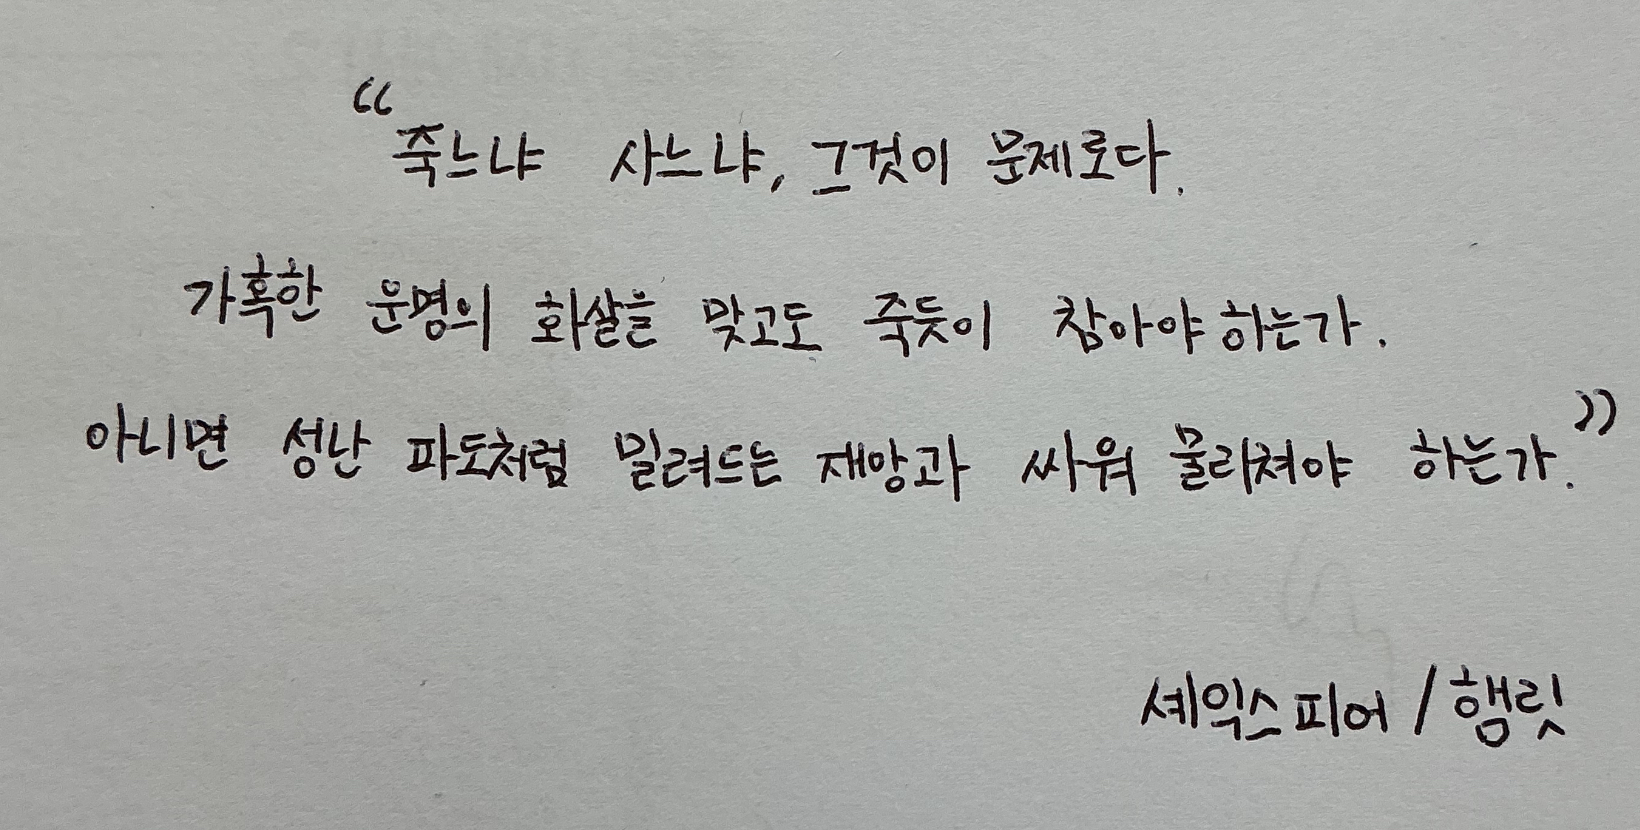 “죽느냐 사느냐, 그것이 문제로다.
가혹한 운명의 화살을 맞고도 죽듯이 참아야 하는가.
아니면 성난 파도처럼 밀려드는 재앙과 싸워 물리쳐야 하는가.”
셰익스피어 / 햄릿